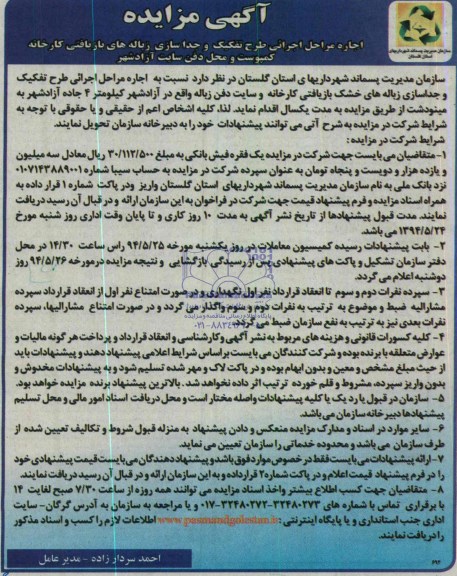 آگهی مزایده
اجاره مراحل اجرائی طرح تفکیک و جداسازی زباله های بازیافتی کارخانه
کمپوست و محل دفن سایت آزادشهر
سازمان مدیریت پسماند شهرداریهای
استان گلستان
سازمان مدیریت پسماند شهرداریهای استان گلستان در نظر دارد نسبت به اجاره مراحل اجرائی طرح تفکیک
و جداسازی زباله های خشک بازیافتی کارخانه و سایت دفن زباله واقع در آزادشهر کیلومتر ۴ جاده آزادشهر به
مینودشت از طریق مزایده به مدت یکسال اقدام نماید. لذا، کلیه اشخاص اعم از حقیقی و یا حقوقی با توجه به
شرایط شرکت در مزایده به شرح آتی می توانند پیشنهادات خود را به دبیرخانه سازمان تحویل نمایند.
شرایط شرکت در مزایده :
۱- متقاضیان می بایست جهت شرکت در مزایده یک فقره فیش بانکی به مبلغ ۳۰/۱۱۲/۵۰۰ ریال معادل سه میلیون
و یازده هزار و دویست و پنجاه تومان به عنوان سپرده شرکت در مزایده به حساب سیبا شماره ۰۱۰۷۱۴۳۸۸۹۰۰۱
نزد بانک ملی به نام سازمان مدیریت پسماند شهرداریهای استان گلستان واریز ودر پاکت شماره ۱ قرار داده به
همراه اسناد مزایده و فرم پیشنهاد قیمت جهت شرکت در فراخوان به این سازمان ارائه و در قبال آن رسید دریافت
نمایند. مدت قبول پیشنهادها از تاریخ نشر آگهی به مدت ۱۰ روز کاری و تا پایان وقت اداری روز شنبه مورخ
۱۳۹۴/۵/۲۴ می باشد.
۲- بابت پیشنهادات رسیده کمیسیون معاملات در روز یکشنبه مورخه ۹۴/۵/۲۵ راس ساعت ۱۴/۳۰ در محل
دفتر سازمان تشکیل و پاکت های پیشنهادی پس از رسیدگی بازگشایی و نتیجه مزایده در مورخه ۹۴/۵/۲۶ روز
دوشنبه اعلام می گردد.
۳- سپرده نفرات دوم و سوم تا انعقاد قرارداد نفر اول نگهداری و در صورت امتناع نفر اول از انعقاد قرارداد سپرده
مشارالیه ضبط و موضوع به ترتیب به نفرات دوم و سوم واگذار می گردد و در صورت امتناع مشارالیها، سپرده
نفرات بعدی نیز به ترتیب به نفع سازمان ضبط می گردد.
۴- کلیه کسورات قانونی و هزینه های مربوط به نشر آگهی و کارشناسی و انعقاد قرارداد و پرداخت هر گونه مالیات و
عوارض متعلقه با برنده بوده و شرکت کنندگان می بایست بر اساس شرایط اعلامی پیشنهاد دهند و پیشنهادات باید
از حیث مبلغ مشخص و معین و بدون ابهام بوده و در پاکت لاک و مهر شده تسلیم شود و به پیشنهادات مخدوش و
بدون واریز سپرده، مشروط و قلم خورده ترتیب اثر داده نخواهد شد. بالاترین پیشنهاد برنده مزایده خواهد بود.
۵- سازمان در قبول یا رد یک یا کلیه پیشنهادات واصله مختار است و محل دریافت اسناد امور مالی و محل تسلیم
پیشنهادها دبیرخانه سازمان می باشد.
۶- سایر موارد در اسناد و مدارک مزایده منعکس و دادن پیشنهاد به منزله قبول شروط و تکالیف تعیین شده از
طرف سازمان می باشد و محدوده خدماتی را سازمان تعیین می نماید.
۷- ارائه پیشنهادات می بایست فقط در خصوص موارد فوق باشد و پیشنهاددهندگان می بایست قیمت پیشنهادی خود
را در فرم پیشنهاد قیمت اعلام و در پاکت شماره ۲ قرار داده و به این سازمان ارائه و در قبال آن رسید دریافت نمایند.
۸- متقاضیان جهت کسب اطلاع بیشتر واخذ اسناد مزایده می توانند همه روزه از ساعت ۷/۳۰ صبح لغایت ۱۴
با برقراری تماس با شماره های ۳۲۴۸۰۲۷۳-۳۲۴۸۰۲۷۲-۰۱۷ و یا مراجعه به سازمان به آدرس گرگان- سایت
اداری جنب استانداری و یا پایگاه اینترنتی : www.pasmandgolestan.ir اطلاعات لازم را کسب و اسناد مذکور
را دریافت نمایند.
احمد سردار زاده - مدیر عامل